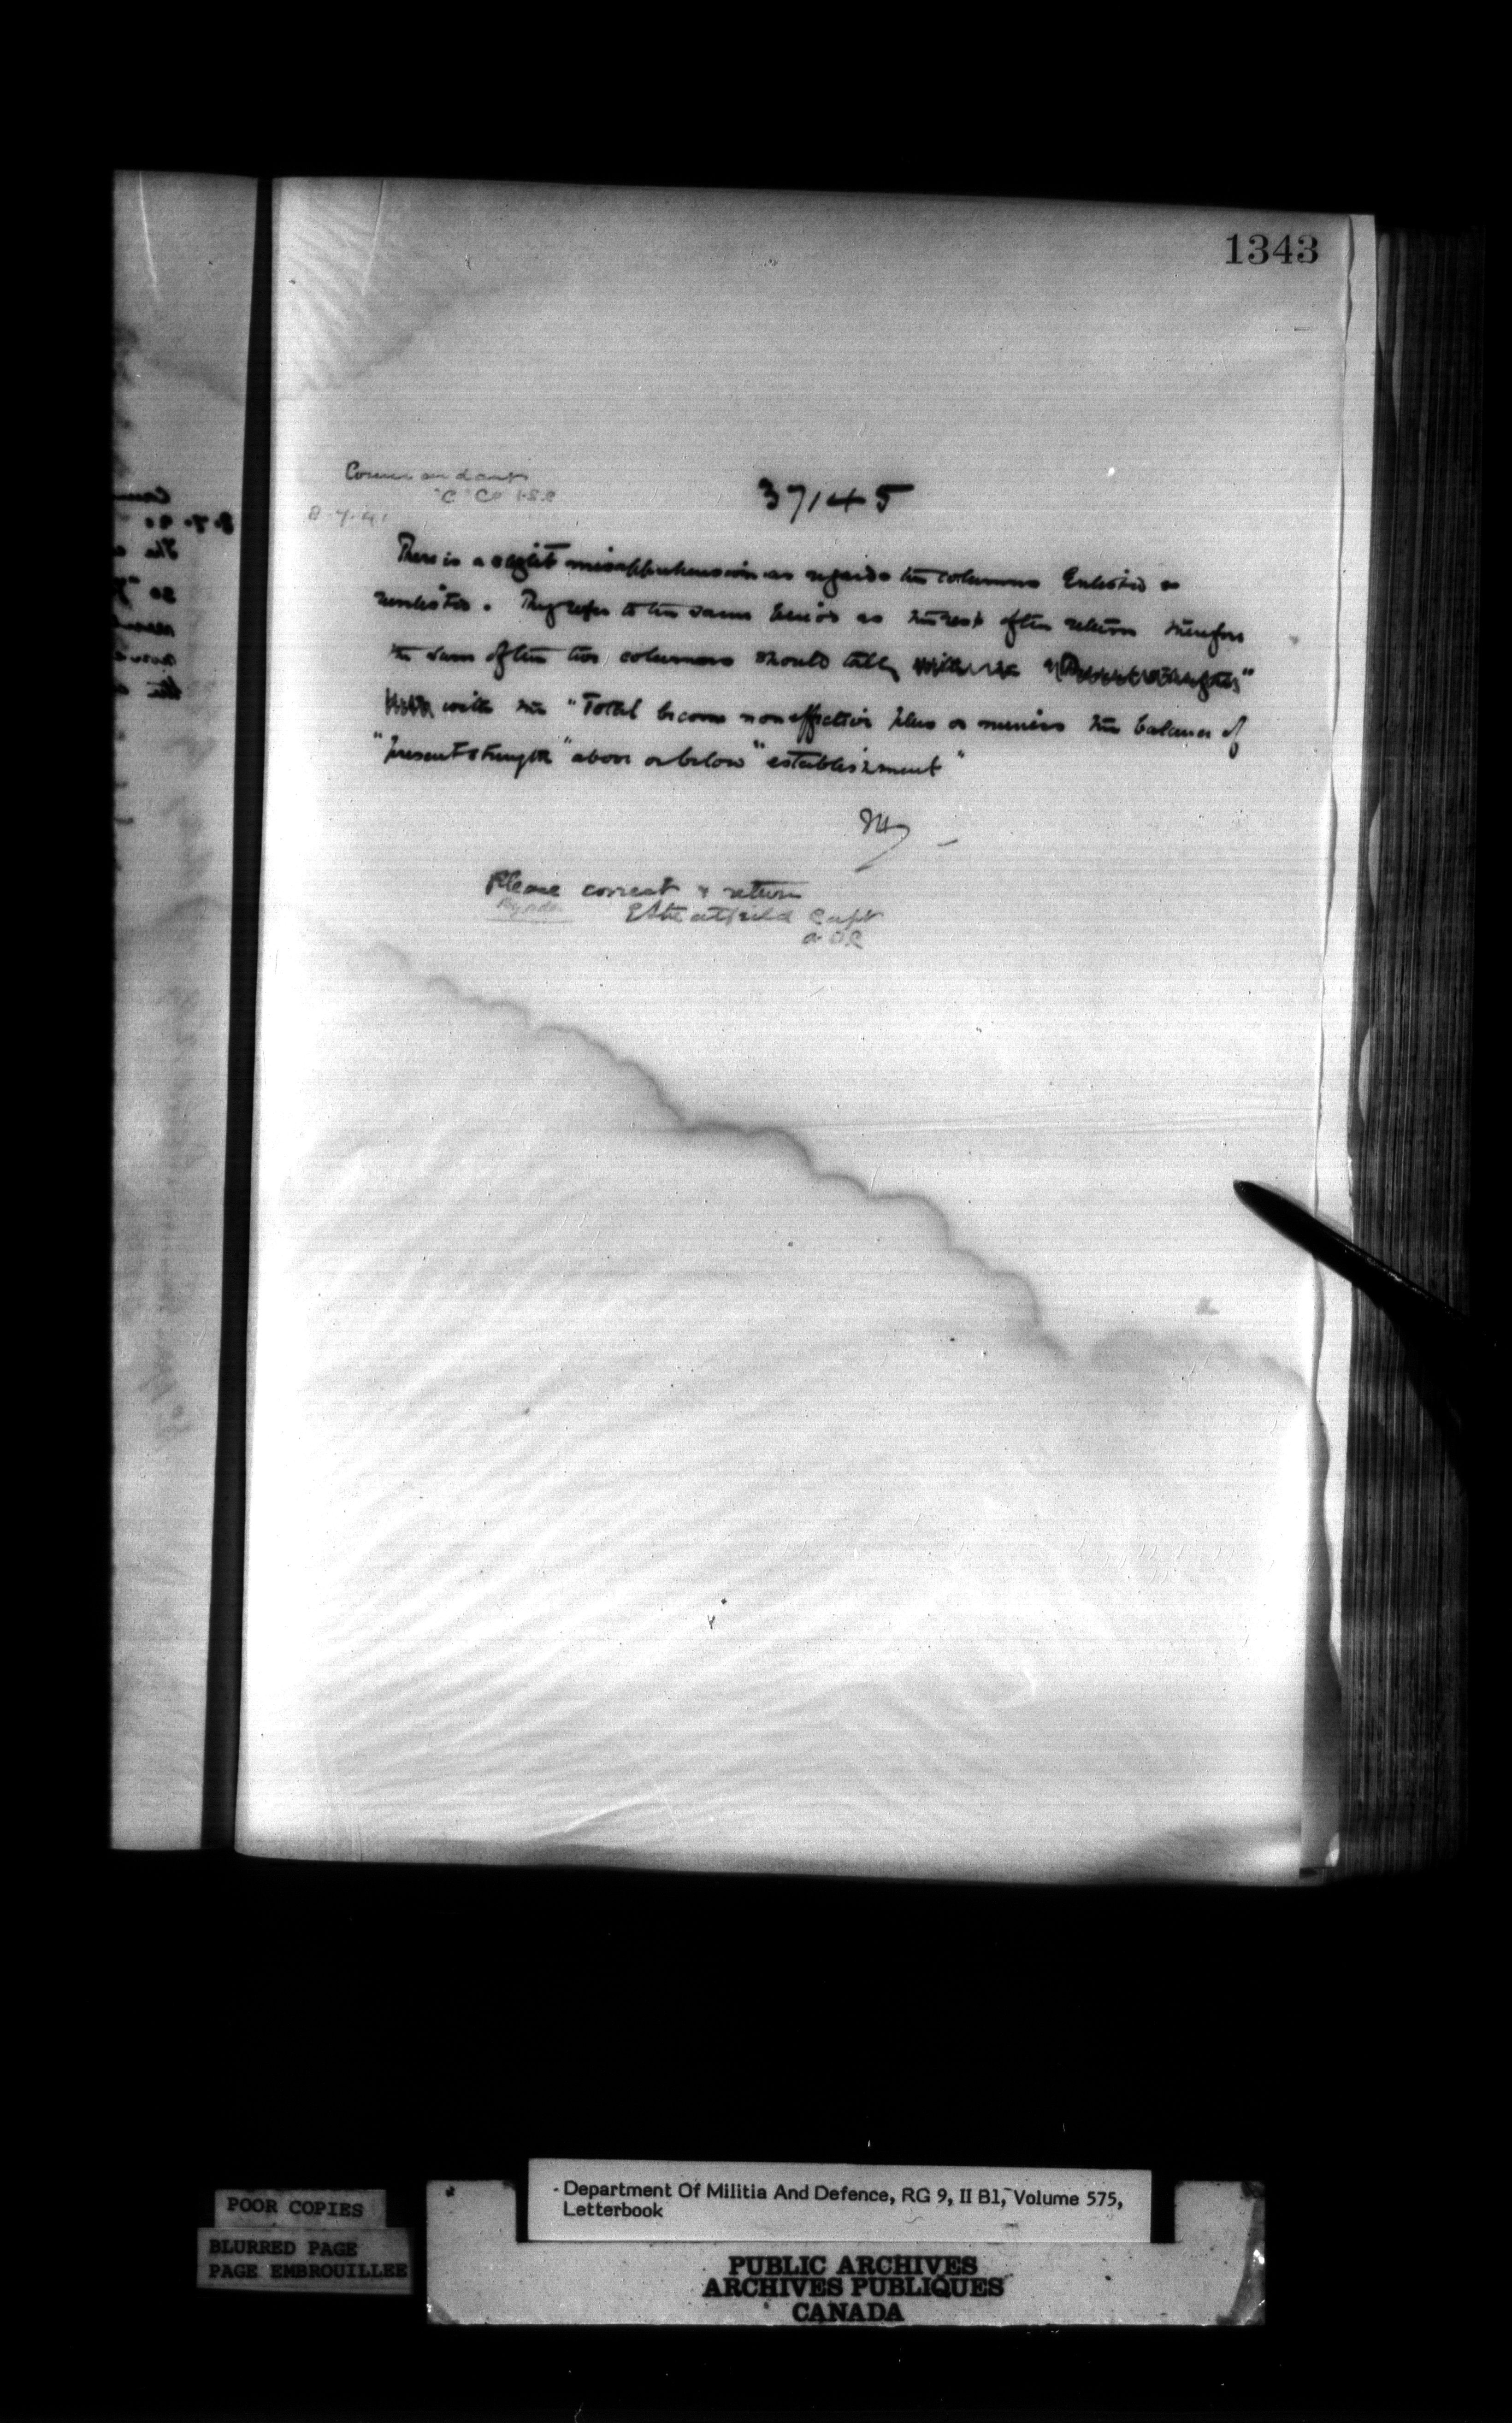 1343
Commandant
"C" Co I.S.C
8.7.91
37145
There is a slight misapprehension as regards the columns Enlisted or
reenlisted. They refer to the same period as the rest of the return therefore
the sum of the two columns should tally
with the "Total become non effective plus or minus the balance of
"present strength" above or below "establishment"
Please correct & return
By order
Streatfeild Capt
a.D.C
POOR COPIES
BLURRED PAGE
PAGE EMBROUILLEE
Department Of Militia And Defence, RG 9, II B1, Volume 575,
Letterbook
PUBLIC ARCHIVES
ARCHIVES PUBLIQUES
CANADA